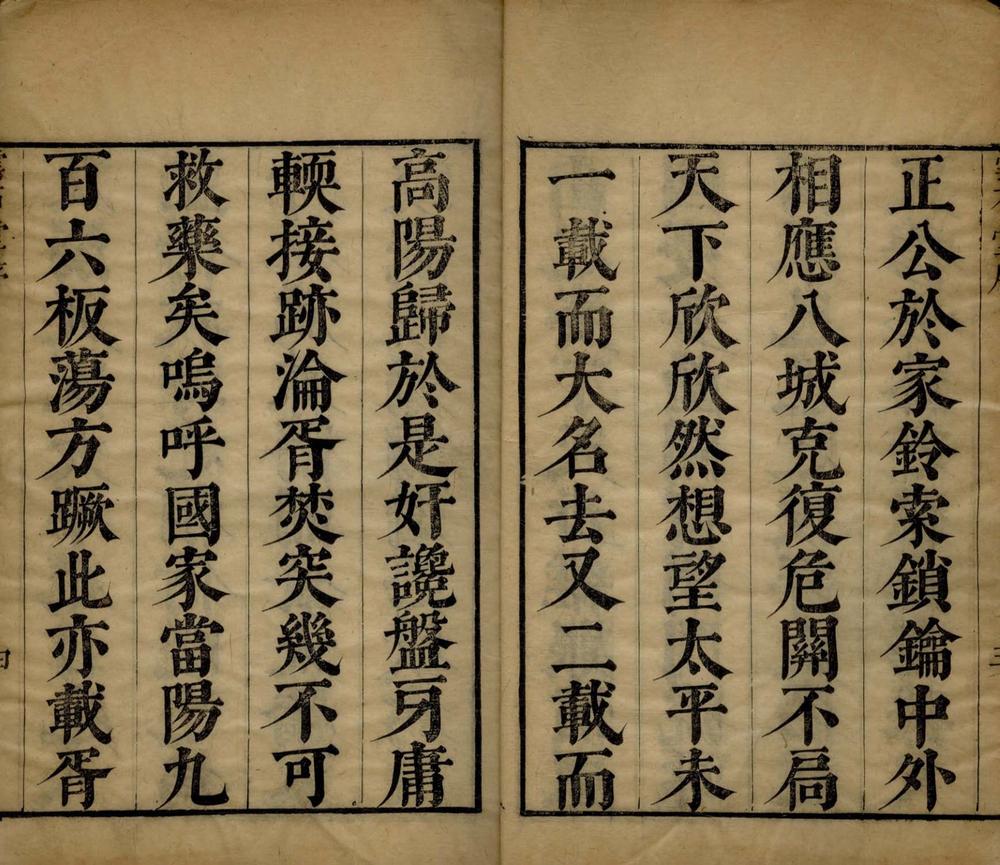 正公於家鈴索鎖鑰中外
相應八城克復危關不扃
天下欣欣然想望太平未
一載而大名去又二載而
高陽歸於是奸讒盤牙庸
輭接跡淪胥焚突幾不可
救藥矣嗚呼國家當陽九
百六板蕩方蹶此亦載胥